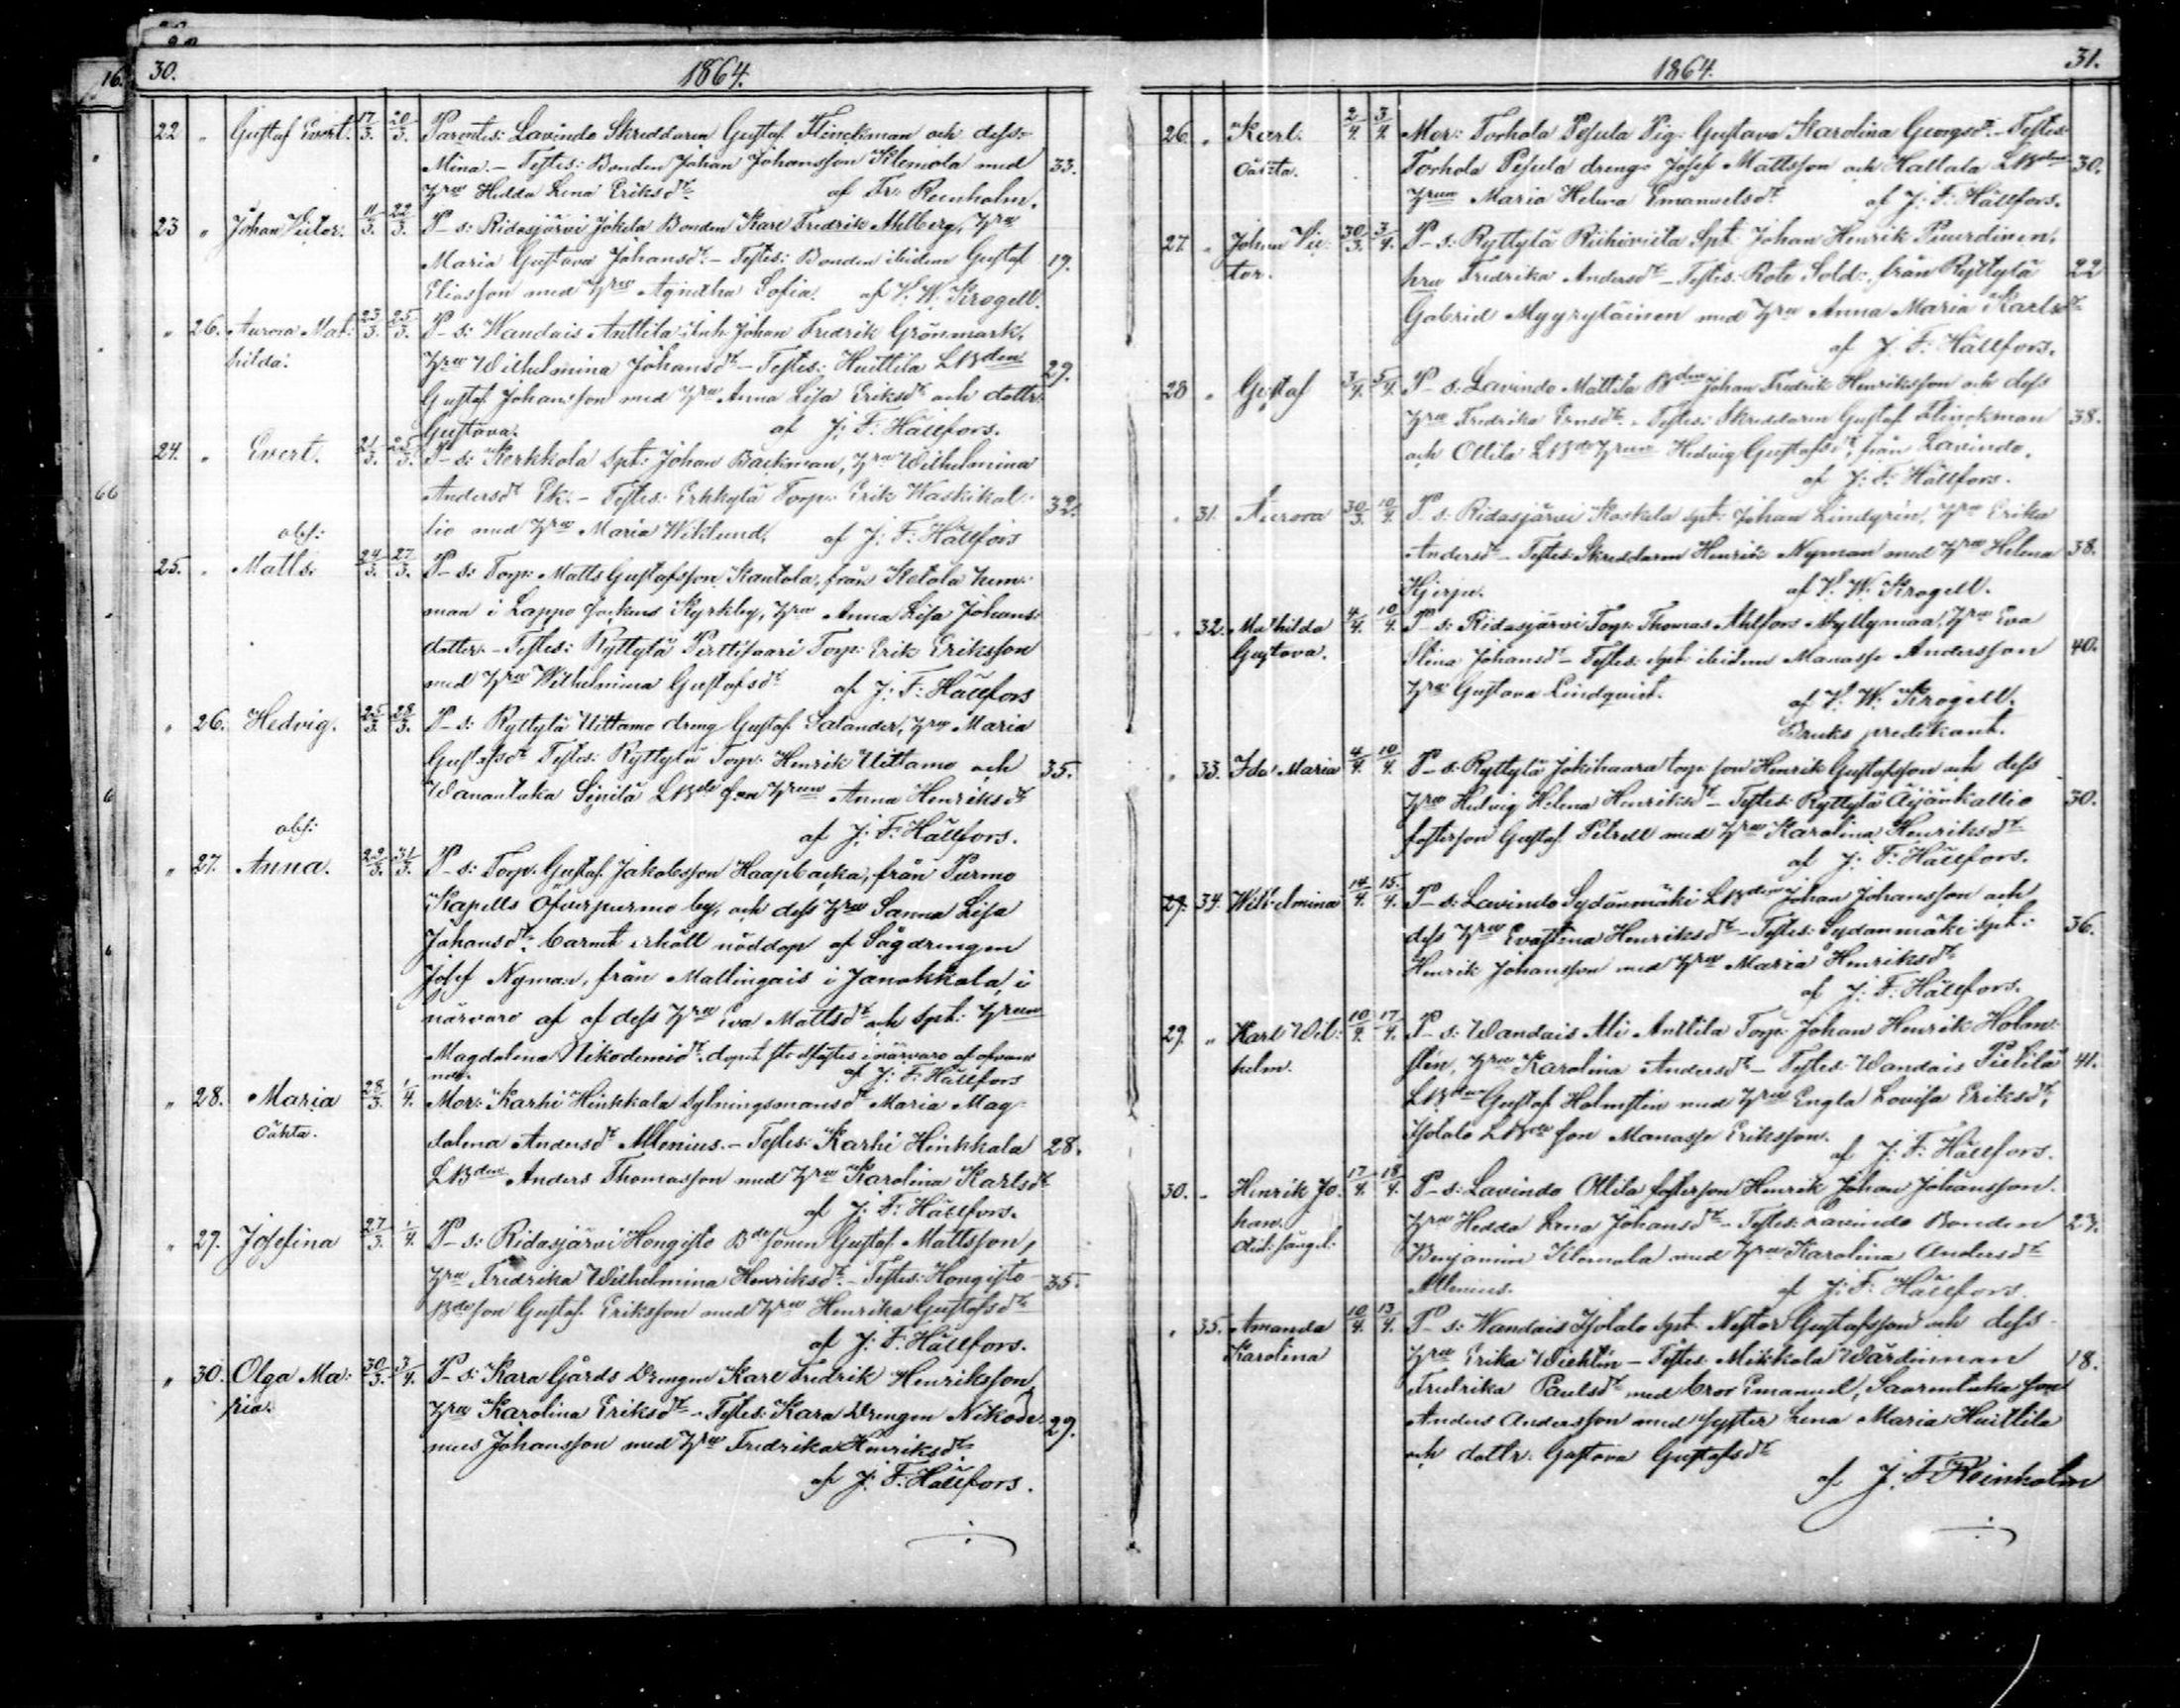 30. 1864.
22 " Gustaf Evert. 17/3. 20/3. Parentes: Lavindo Skreddaren Gustaf Flinckman och dess
Mina. – Testes: Bonden Johan Johansson Kilemola med 33.
Hru Hedda Lena Eriksdr af Fr: Reinholm.
23 " Johan Victor. 11/3. 22/3. P–s: Ridasjärvi Jokela Bonden Karl Fredrik Ahlberg, Hru
Maria Gustava Johansdr – Testes: Bonden ibidem Gustaf 19.
Eliasson med Hru Agnetha Sofia. af V. W. Krogell.
" 26. Aurora Mat: 23/3. 25/3. P–s: Wandais Anttila Johan Fredrik Grönmark,
hilda. Hru Wilhelmina Johansdr – Testes: Huittila LBden 29.
Gustaf Johansson med Hru Anna Lisa Eriksdr och dottr.
Gustava. af J: F: Hällfors.
24. " Evert. 21/3. 25/3. P–s: Kerkkola Spt: Johan Backman, Hru Wilhelmina
Andersdr Ek. – Testes: Erkkylä Torp: Erik Waskikal- 32.
lio med Hru Maria Wiklund. af J: F: Hällfors
obs:
25. " Matts. 24/3. 27/3. P–s: Torp: Matts Gustafsson Kantola, från Ketola hem-
man i Lappo Sockens Kyrkby, Hru Anna Lisa Johans-
dotter. – Testes: Ryttylä Perttisaari Torp: Erik Eriksson
med Hru Wilhelmina Gustafsdr af J: F: Hällfors
" 26. Hedvig. 25/3. 28/3. P–s: Ryttylä Uittamo dreng Gustaf Salander, Hru Maria
Gustafsdr Testes: Ryttylä Torp: Henrik Uittamo och 35.
Wanantaka Sipilä LBde son Hrun Anna Henriksdr
af J: F: Hällfors.
obs:
" 27. Anna. 22/3. 31/3. P–s: Torp. Gustaf Jakobsson Haapbacka, från Purmo
Kapells Öfverpurmo by, och dess Hru Sanna Lisa
Johansdr; barnet erhöll nöddop af Sågdrengen
Josef Nyman, från Mallingais i Janakkala, i
närvaro af af dess Hru Eva Mattsdr och Spt: Hrun
Magdalena Nikodemidr. dopet stadfästes i närvaro af ofvan-
af J: F: Hällfors
" 28. Maria 28/3. 1/4. Mor: Karhi Hinkkala dylningsmansdr Maria Mag-
oäkta. dalena Andersdr Allenius. – Testes: Karhi Hinkkala 28.
LBden Anders Thomasson med Hru Karolina Karlsdr
af J: F: Hällfors.
" 29. Josefina 27/3. 1/4. P–s: Ridasjärvi Hongisto Bdesonen Gustaf Mattsson,
Hru Fredrika Wilhelmina Henriksdr. – Testes: Hongisto 35.
Bdeson Gustaf Eriksson med Hru Henrika Gustafsdr
af J: F: Hällfors.
" 30. Olga Ma: 30/3. 3/4. P–s: Kara Gårds Drengen Karl Fredrik Henriksson,
ria. Hru Karolina Eriksdr – Testes: Kara Drengen Nikode- 29.
mus Johansson med Hru Fredrika Henriksdr
af J: F: Hällfors.
1864. 31.
26. " Karl. 2/4 3/4 Mor: Torhola Pesula Pig. Gustava Karolina Georgsdr. – Testes:
Oäkta. Torhola Pesula dreng: Josef Mattsson och Hattala LBdens 30.
Hrun Maria Helena Emanuelsdr af J: F: Hällfors.
27. " Johan Vic- 30/3. 3/4. P–s: Ryttylä Riihiviita Spt: Johan Henrik Puurdinen,
tor. hru Fredrika Andersdr – Testes: Rote Sold:, från Ryttylä 22
Gabriel Myyryläinen med Hru Anna Maria Karlsdr
af J: F: Hällfors.
28 " Gustaf 3/4. 5/4. P–s: Lavindo Mattila Bden Johan Fredrik Henriksson och dess
Hru Fredrika Ernsdr. – Testes: Skreddaren Gustaf Flinckman 38.
och Ollila LBde Hrun Hedvig Gustafsdr, från Lavindo.
af J: F: Hällfors.
" 31. Aurora 30/3. 10/4. P–s: Ridasjärvi Koskela Spt: Johan Lindgrén, Hru Erika
Andersdr – Testes: Skreddaren Henrik Nyman med Hru Helena 38.
Hjerpe. af V. W. Krogell.
" 32. Mathilda 4/4. 10/4. P–s: Ridasjärvi Torp: Thomas Ahlfors Myllymaa, Hru Eva
Gustava. Stina Johansdr – Testes: Spt: ibidem Manasse Andersson 40.
Hru Gustava Lindqvist. af V. W. Krogell.
Bruks predikant.
" 33. Ida Maria 4/4. 10/4. P–s: Ryttylä Jokihaara torp: son Henrik Gustafsson och dess
Hru Hedvig Helena Henriksdr – Testes: Ryttylä Äijänkallio 30.
fosterson Gustaf Petrell med Hru Karolina Henriksdr
af J: F: Hällfors.
29. 34. Wilhelmina 14/4. 15/4. P–s: Lavindo Sydänmäki LBden Johan Johansson och
dess Hru Evastina Henriksdr – Testes: Sydänmäki Spt: 36.
Henrik Johansson med Hru Maria Henriksdr
af J: F: Hällfors.
29. " Karl Wil: 10/4. 17/4. P–s: Wandais Ali Anttila Torp: Johan Henrik Holm-
helm. stén, Hru Karolina Andersdr – Testes: Wandais Pietilä 41.
LBden Gustaf Holmstén med Hru Engla Lovisa Eriksdr,
Isolalo LBde son Manasse Eriksson. af J: F: Hällfors.
30. " Henrik Jo- 17/4. 18/4. P–s: Lavindo Ollila fosterson Henrik Johan Johansson.
han. Hru Hedda Lena Johansdr – Testes: Lavindo Bonden 23.
Benjamin Kilomola med Hru Karolina Andersdr
Allenius. af J: F: Hällfors.
" 35. Amanda 10/4. 13/4. P–s: Wandais Isolalo Spt: Nestor Gustafsson och dess
Karolina Hru Erika Wichtin – Testes: Mikkola Wärdinnan 18.
Fredrika Paulsdr med bror Emanuel, Saarentaka son
Anders Andersson med syster Lena Maria Huittila
och dottr. Gustava Gustafsdr
af J. F. Reinholm